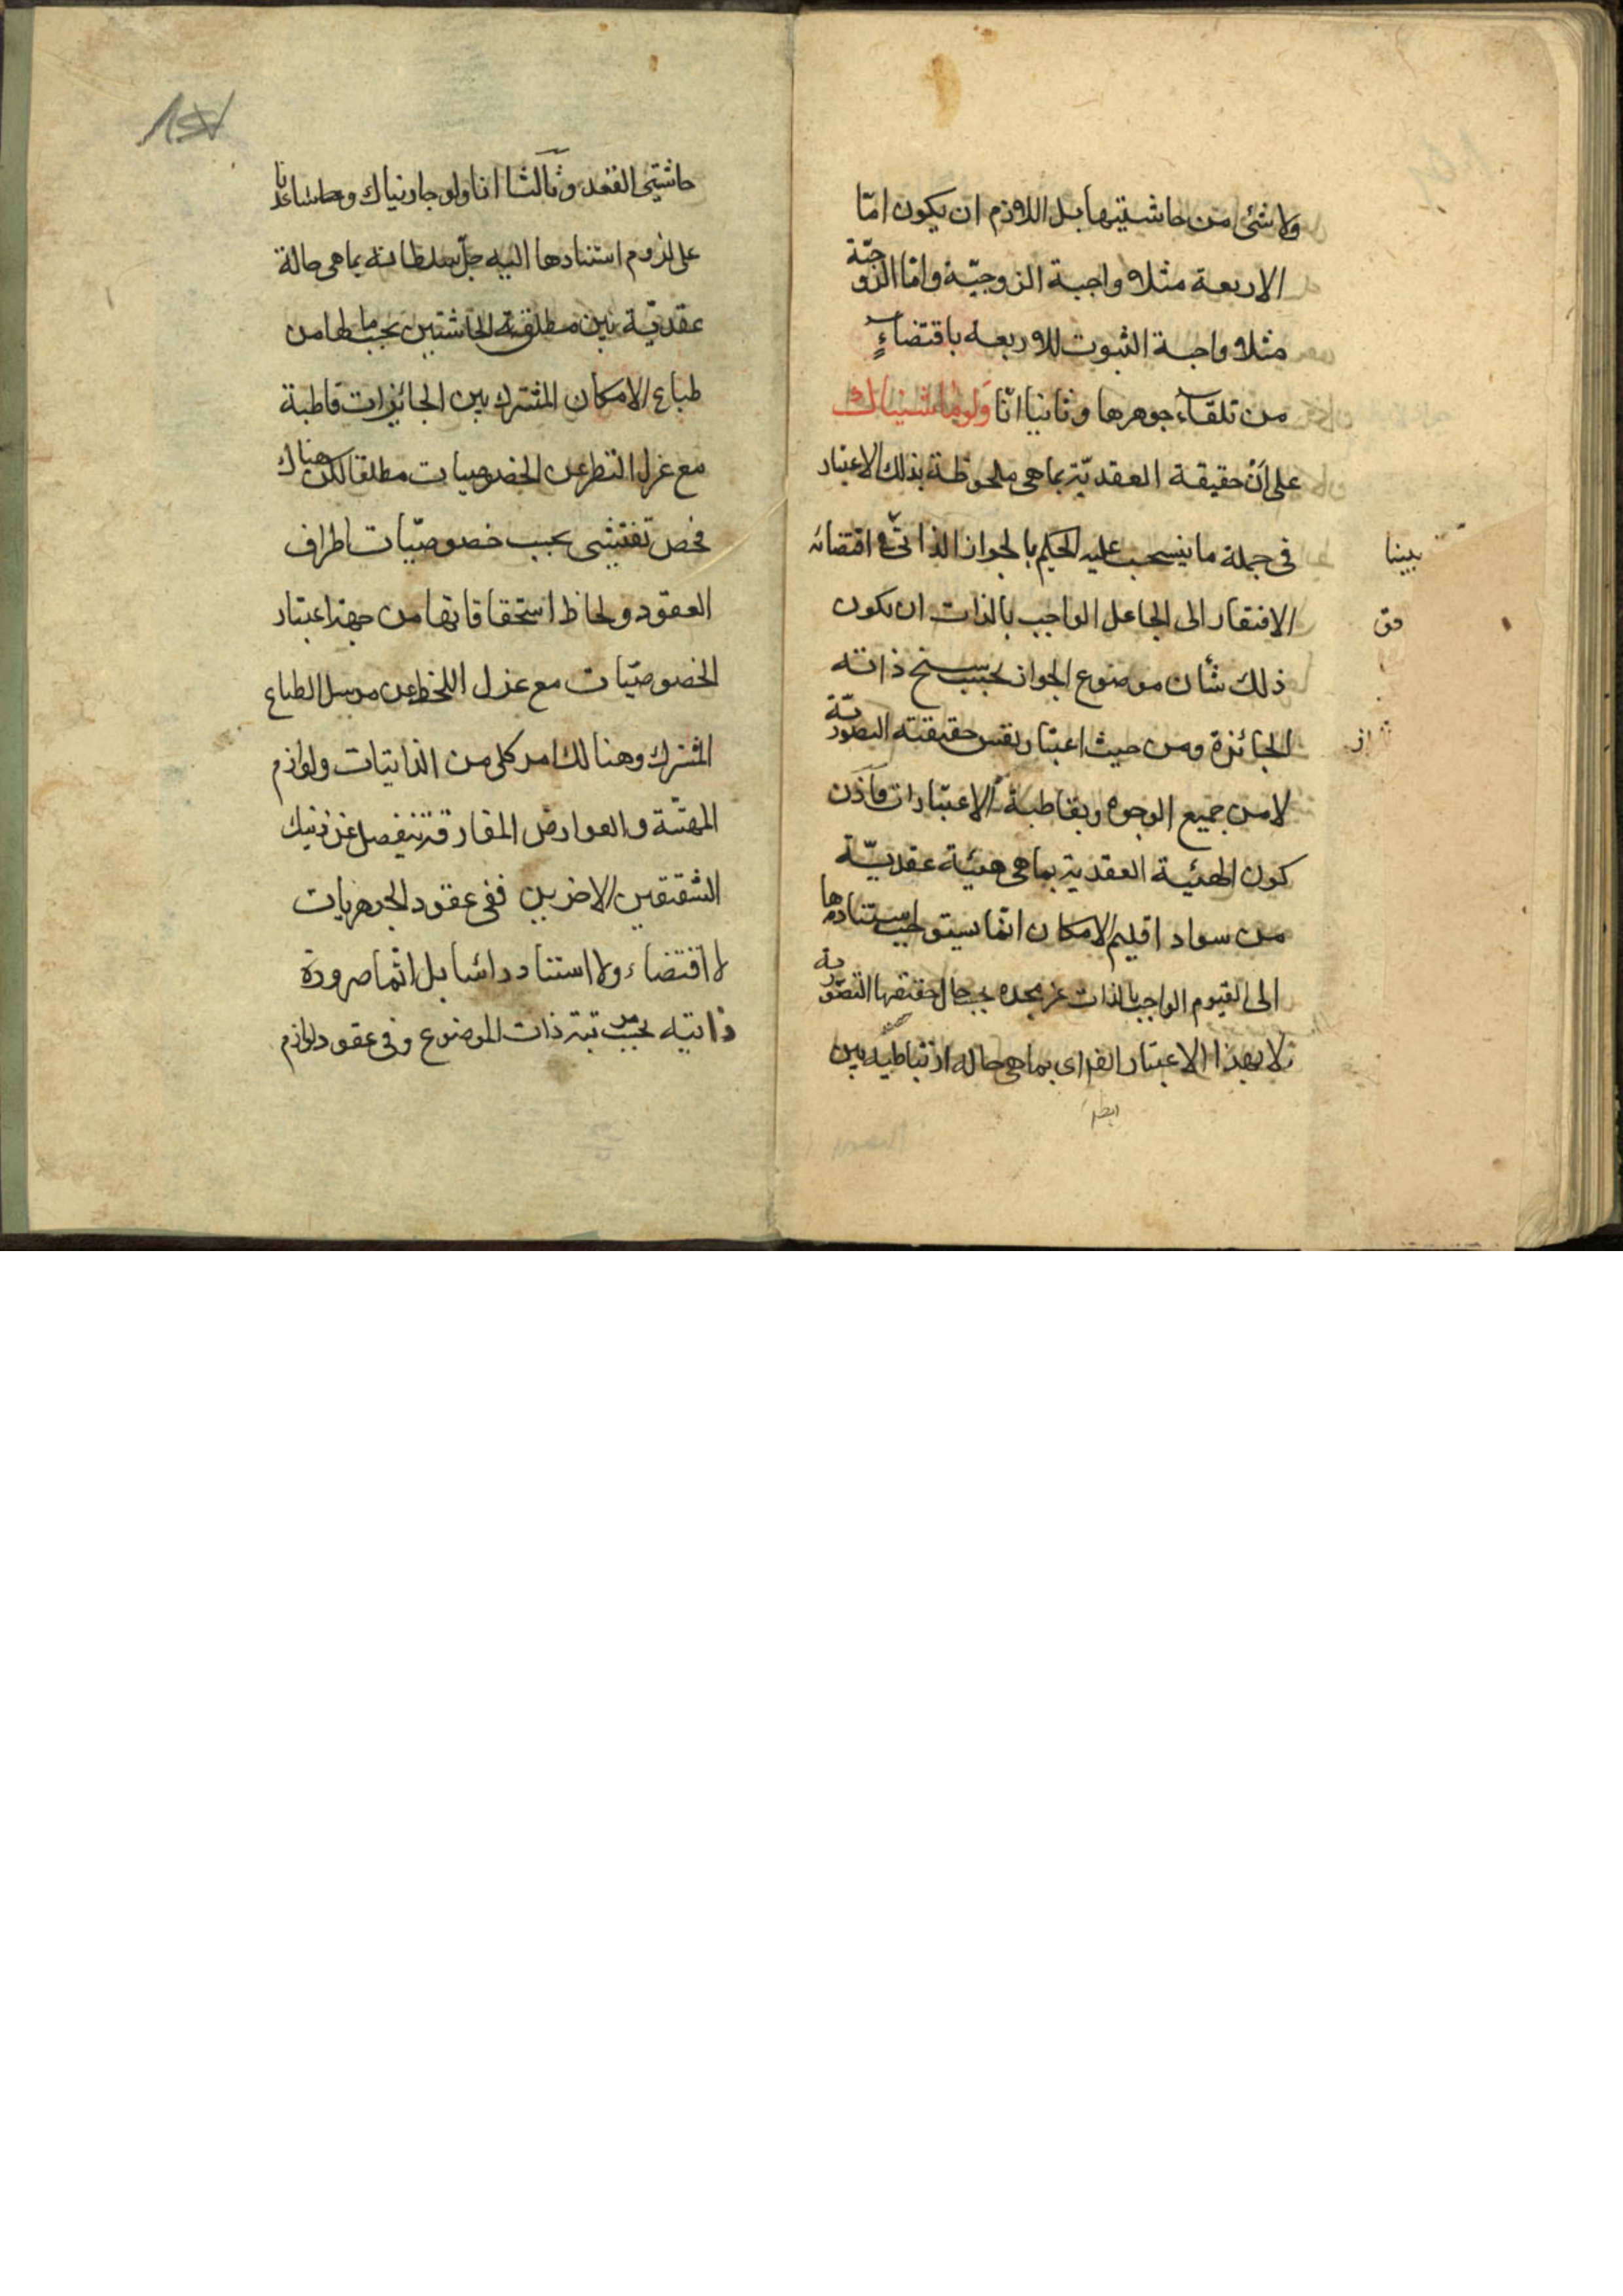 ولا شئ من حاشيتيها بل اللازم ان يكون امّا
الاربعة مثلا واجبة الزوجيّة وامّا الزوجيّة
مثلا واجبة الثبوت للاربعة باقتضاءٍ
من تلقاء جوهرها وثانيا انّا ولو ماشيناك
على انّ حقيقة العقديّة بما هى ملحوظة بذلك الاعتبار
فى جملة ما ينسحب عليه الحكم بالجواز الذاتىّ و اقتضائه
الافتقار الى الجاعل الواجب بالذات ان يكون
ذلك شأن موضوع الجواز بحسب سنخ ذاته
الجائزة ومن حيث اعتبار نفس حقيقته التصوريّة
لا من جميع الوجوه وبقاطبة الاعتبارات فاذن
كون الهيئة العقدية بما هى هيئة عقديّة
من سواد اقليم الامكان انّما يستوجب استنادها
الى القيوم الواجب بالذات عز مجده بحسب حال حقيقتها التصوّرية
لا بهذا الاعتبار اى بما هى حالة ارتباطية بين
بينا
حاشيتى العقد وثالثا انا ولو جاريناك
على لزوم استنادها اليه جلّ سلطانه بما هى حالة
عقديّة بين مطلقة الحاشيتين بحسب ما لها من
طباع الامكان المشترك بين الجائزات قاطبة
مع عزل النظر عن الخصوصيات مطلقا لكن هناك
فحص تفتيشى بحسب خصوصيّات اطراف
العقود ولحاظ استحقاقاتها من جهة اعتبار
الخصوصيّات مع عزل اللحظ عن مرسل الطباع
المشترك وهنالك امر كلى من الذاتيات ولوازم
المهيّة والعوارض المفارقة ينفصل عن ذينك
الشقيقين الاخرين ففى عقود الجوهريات
لا اقتضاء ولا استناد راسا بل انّما ضرورة
ذاتيه بحسب مرتبة ذات الموضوع وفى عقود لوازم